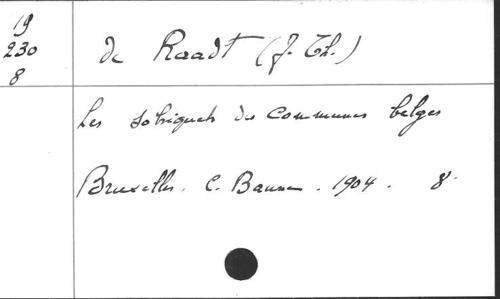 19
230
8
de Raadt (J. Th.)
Les sobriquets des communes belges
Bruxelles. C. Baune. 1904. 8°